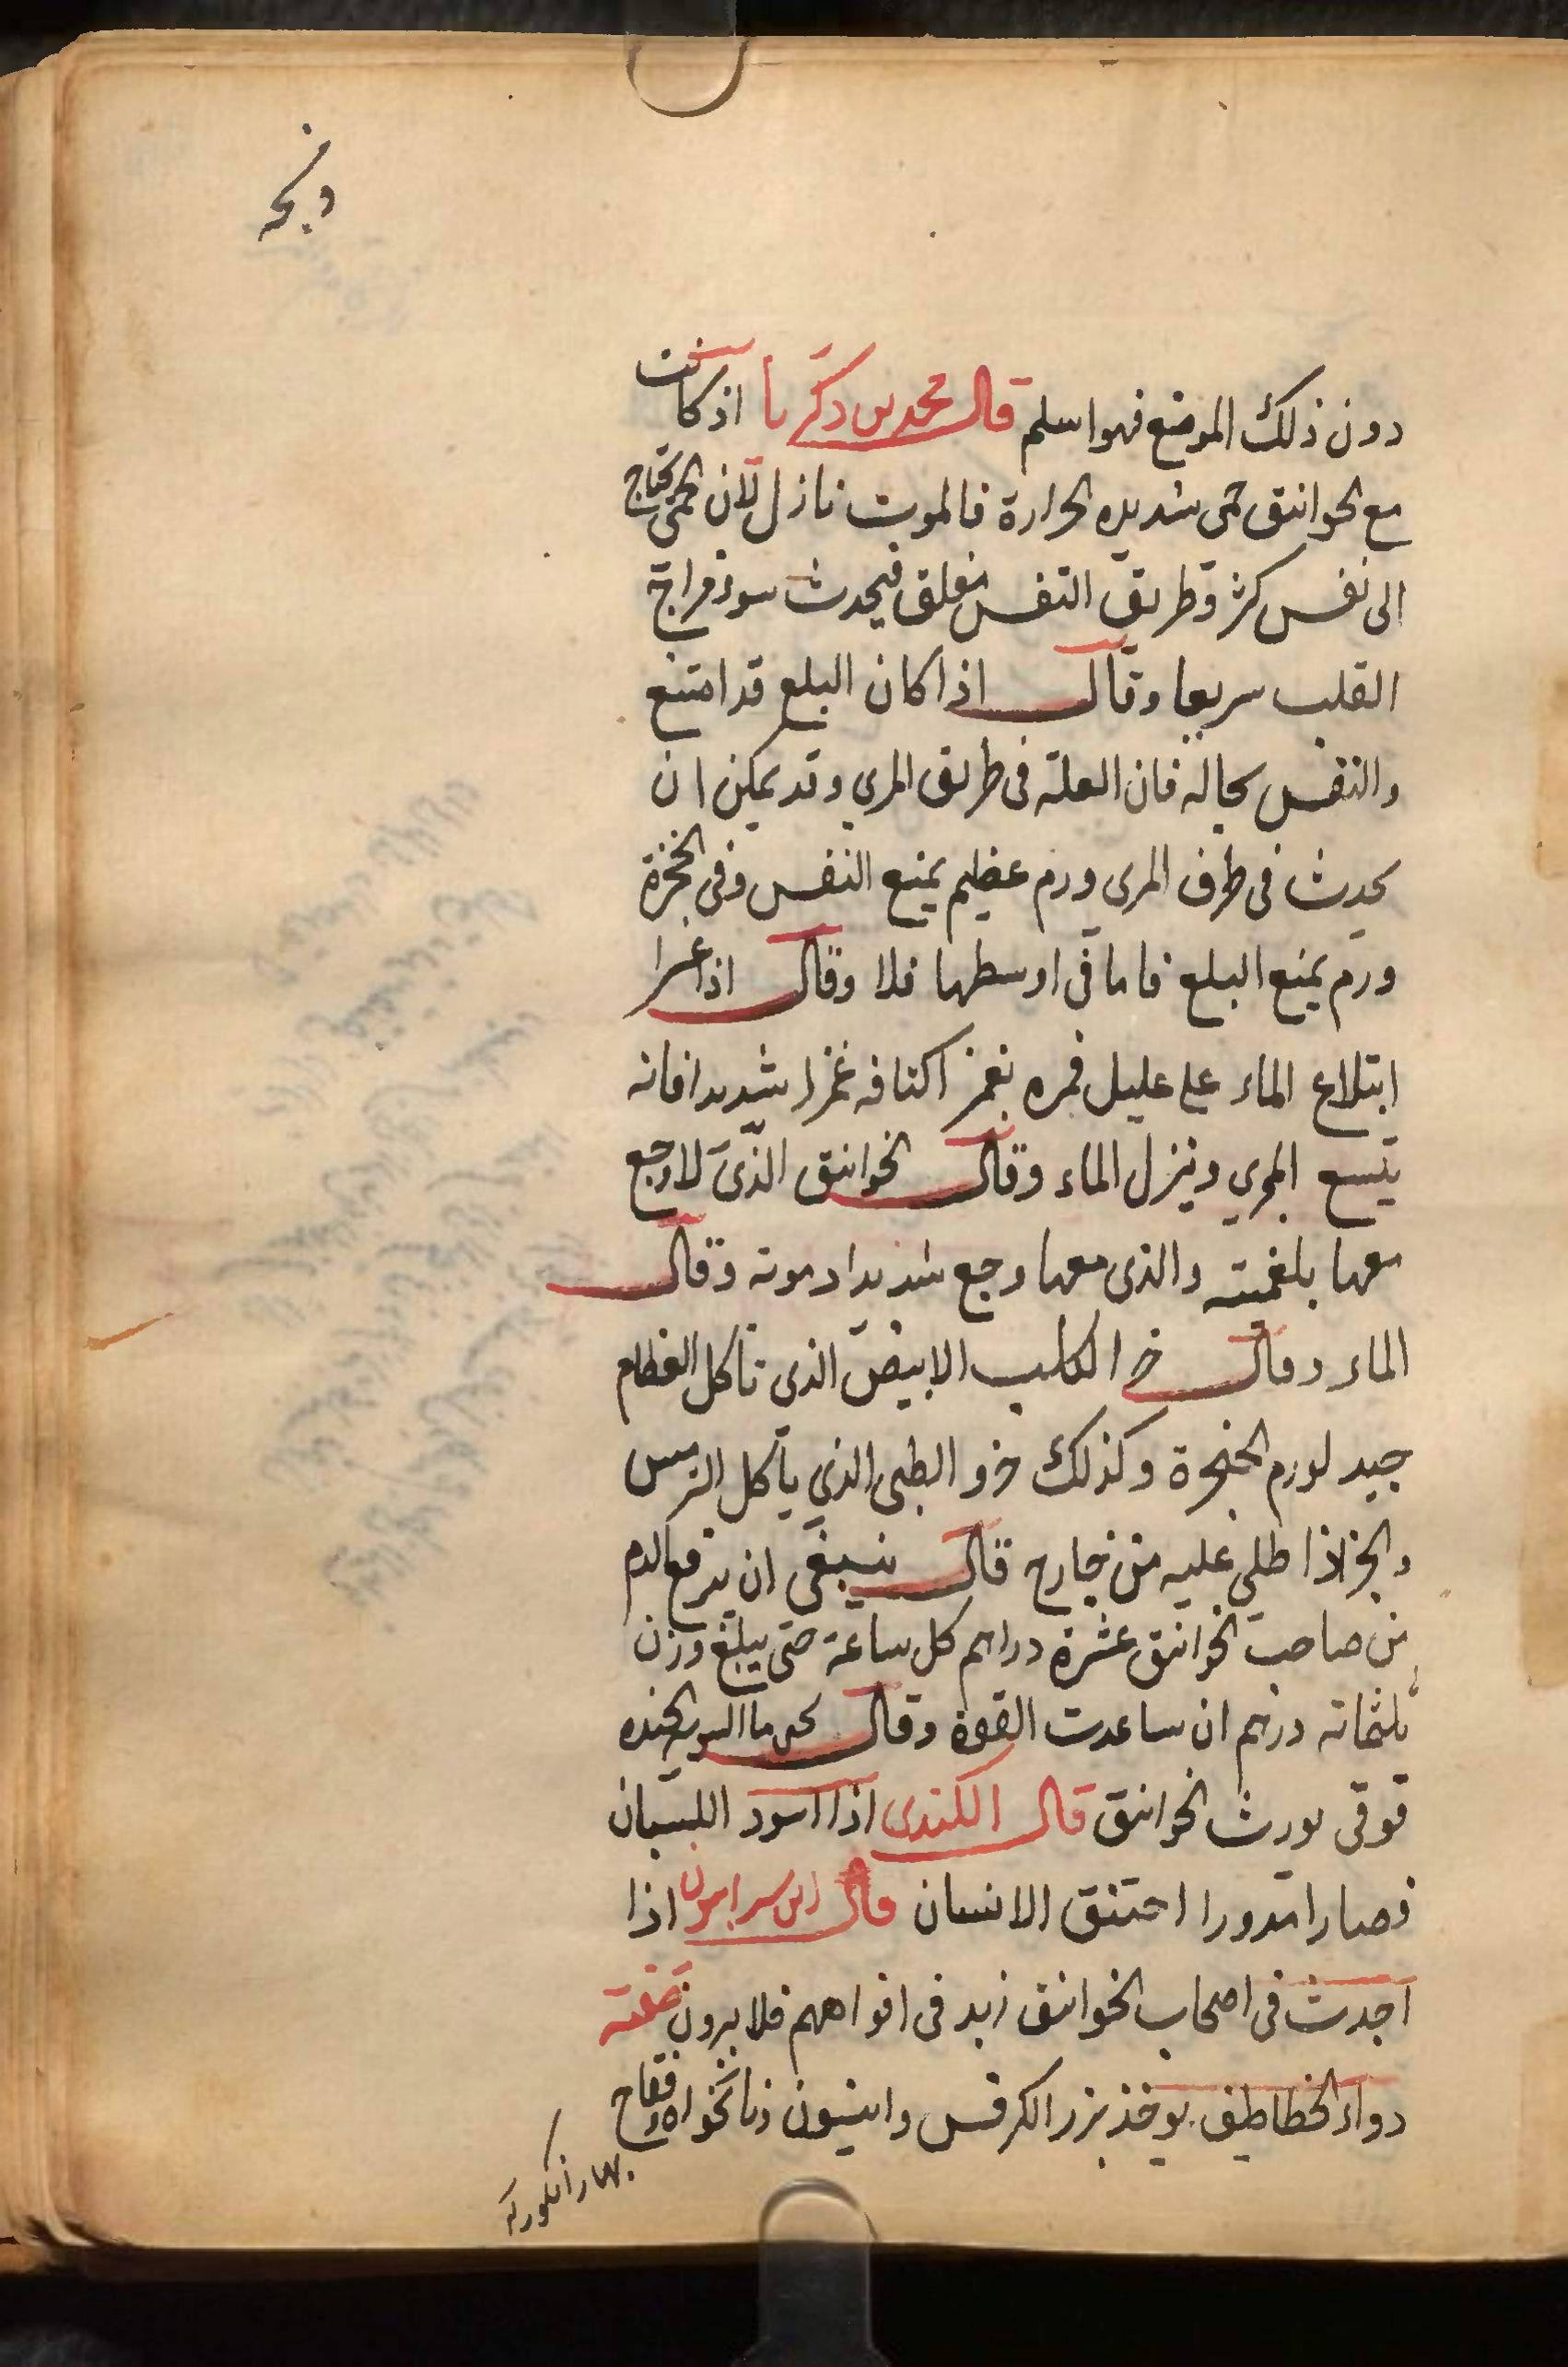 ذبحة
دون ذلك الموضع فهو اسلم قال محمد بن زكريا اذ كانت
مع الخوانيق حمى شديده الحرارة فالموت نازل لان الحمى تحتاج
الى نفس كثر وطريق التفس مغلق فيحدث سوء مزاج
القلب سريعا وقال اذا كان البلع قد امتنع
والنفس بحاله فان العلة فى طريق المري وقد يمكن ان
يحدث فى طرف المرى ورم عظيم يمنع النفس وفى الحنجرة
ورم يمنع البلع فاما فى اوسطها فلا وقال اذا عسرا
ابتلاع الماء على عليل فمره بغمز اكتافه غمزا شديدا فانه
يتسع المري وينزل الماء وقال الخوانيق الذى لا وجع
معها بلغميته والذى معها وجع شديدا دموته وقال
الماء وقال خرا الكلب الابيض الذى تاكل العظام
جيد لورم الحنجرة وكذلك خرو الطبى الذي يأكل الترمس
والخبز اذا طلى عليه من خارج قال ينبغى ان يخرج الدم
من صاحب الخوانيق عشرة دراهم كل ساعة حتى يبلغ وزن
ثلثمائه درهم ان ساعدت القوة وقال
قوقى يورث الخوانيق قال الكندى اذا اسود اللسان
فصارا مدورا اختنق الانسان قال ابن سرابيون اذا
احدث فى اصحاب الخوانيق زبد فى افواههم فلا يبرون صفته
دواء الخطاطيف يوخذ بزر الكرفس وانيسون ونانخواه وفقاح